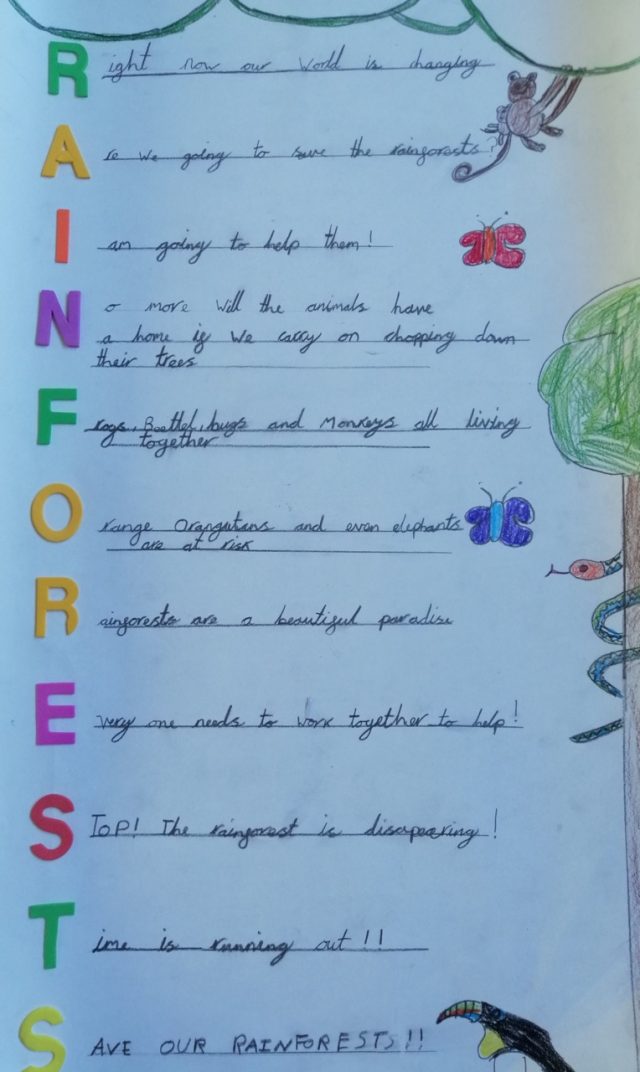 Right now our World is changing
Are we going to save the rainforests?
I am going to help them!
No more Will the animals have
a home if We carry on chopping down
their trees
Frogs, Beetles, bugs and Monkeys all living
together
Orange Orangutans and even elephants
are at risk
Rainforests are a beautiful paradise
Every one needs to work together to help!
STOP! The rainforest is disapearing!
Time is running out!!
SAVE OUR RAINFORESTS!!